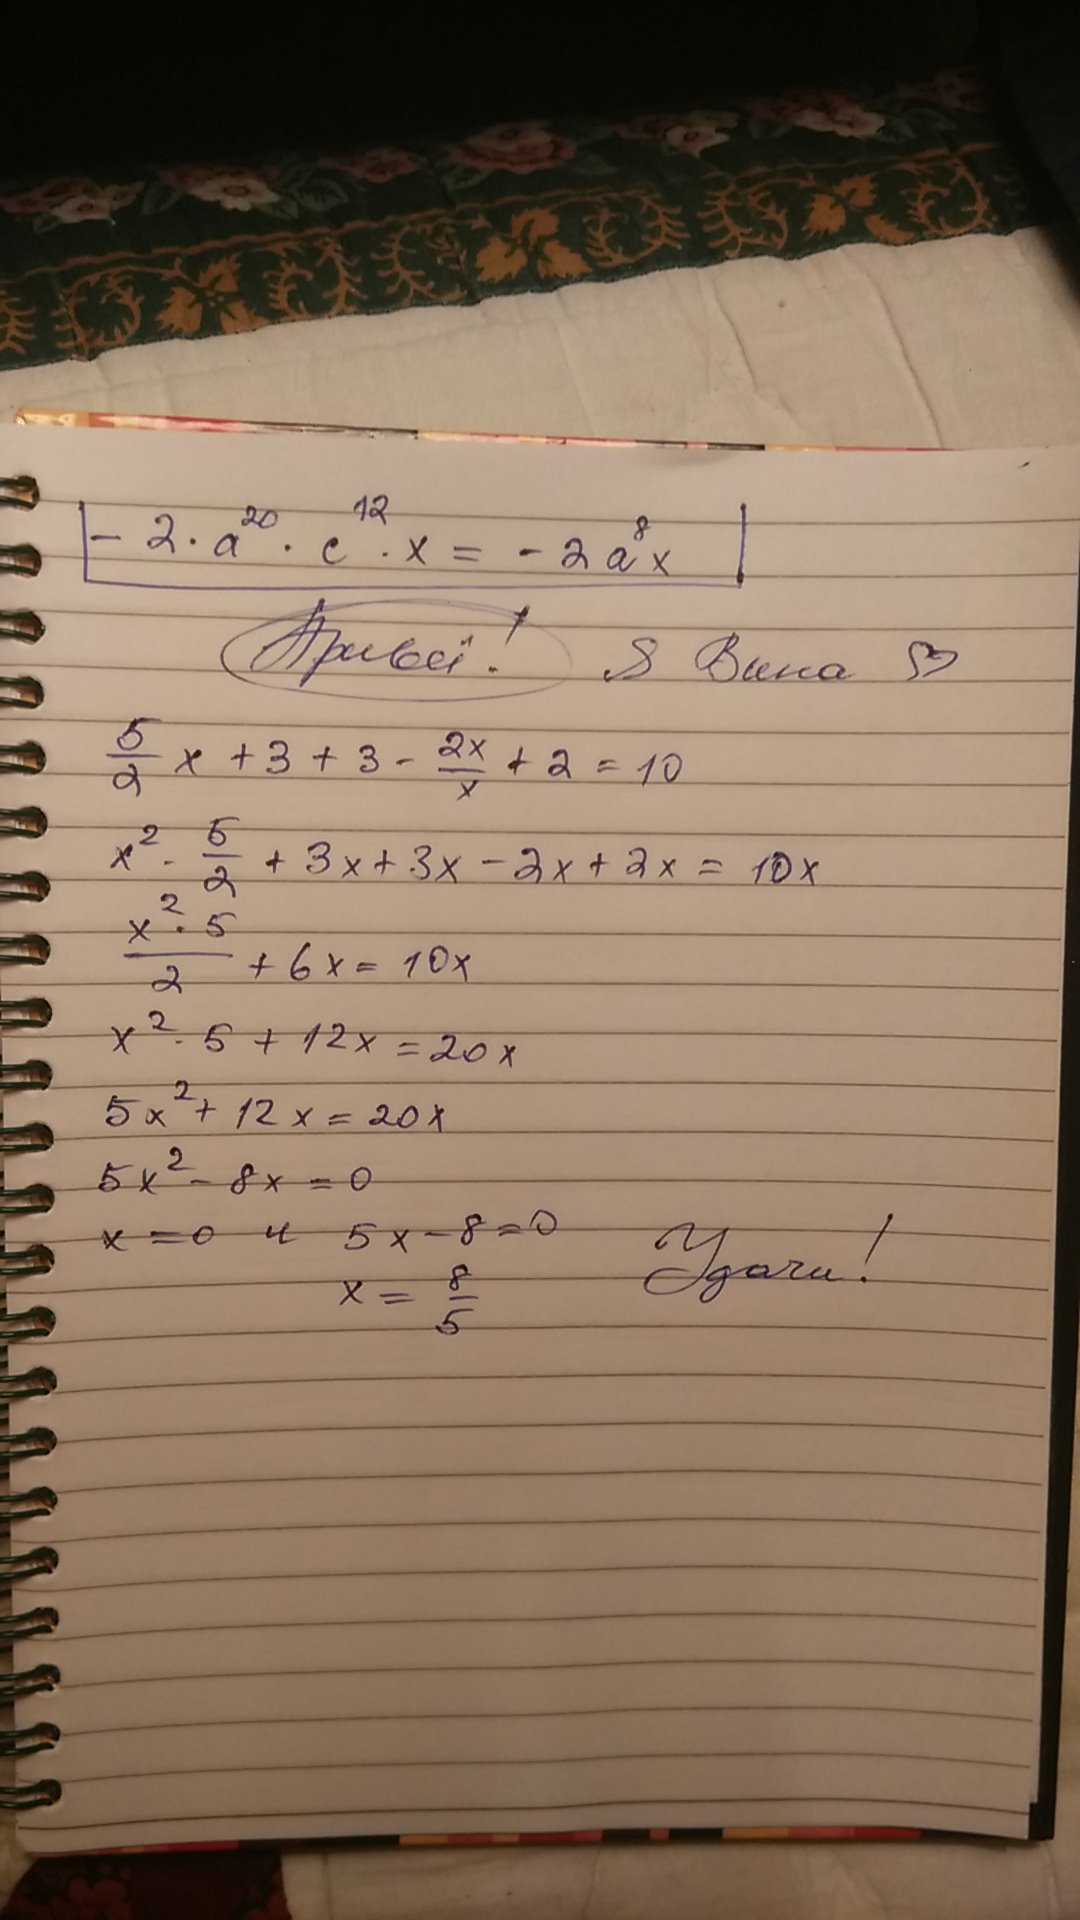 - 2 · a²⁰ · c¹² · x = - 2a⁸x
Привет! Я Вика ♡
5/2 x + 3 + 3 - 2x/x + 2 = 10
x² · 5/2 + 3x + 3x - 2x + 2x = 10x
x² · 5/2 + 6x = 10x
x² · 5 + 12x = 20x
5x² + 12x = 20x
5x² - 8x = 0
x = 0 и 5x - 8 = 0
x = 8/5
Удачи!